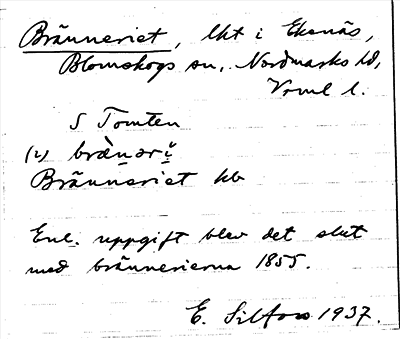 Bränneriet, lht i Ekenäs,
Blomskogs sn, Nordmarks hd,
Vrml l.
S Tomten
(2) brä̀nəri
Bränneriet kb
Enl. uppgift blev det slut
med brännerierna 1855.
E. Silfors 1937.